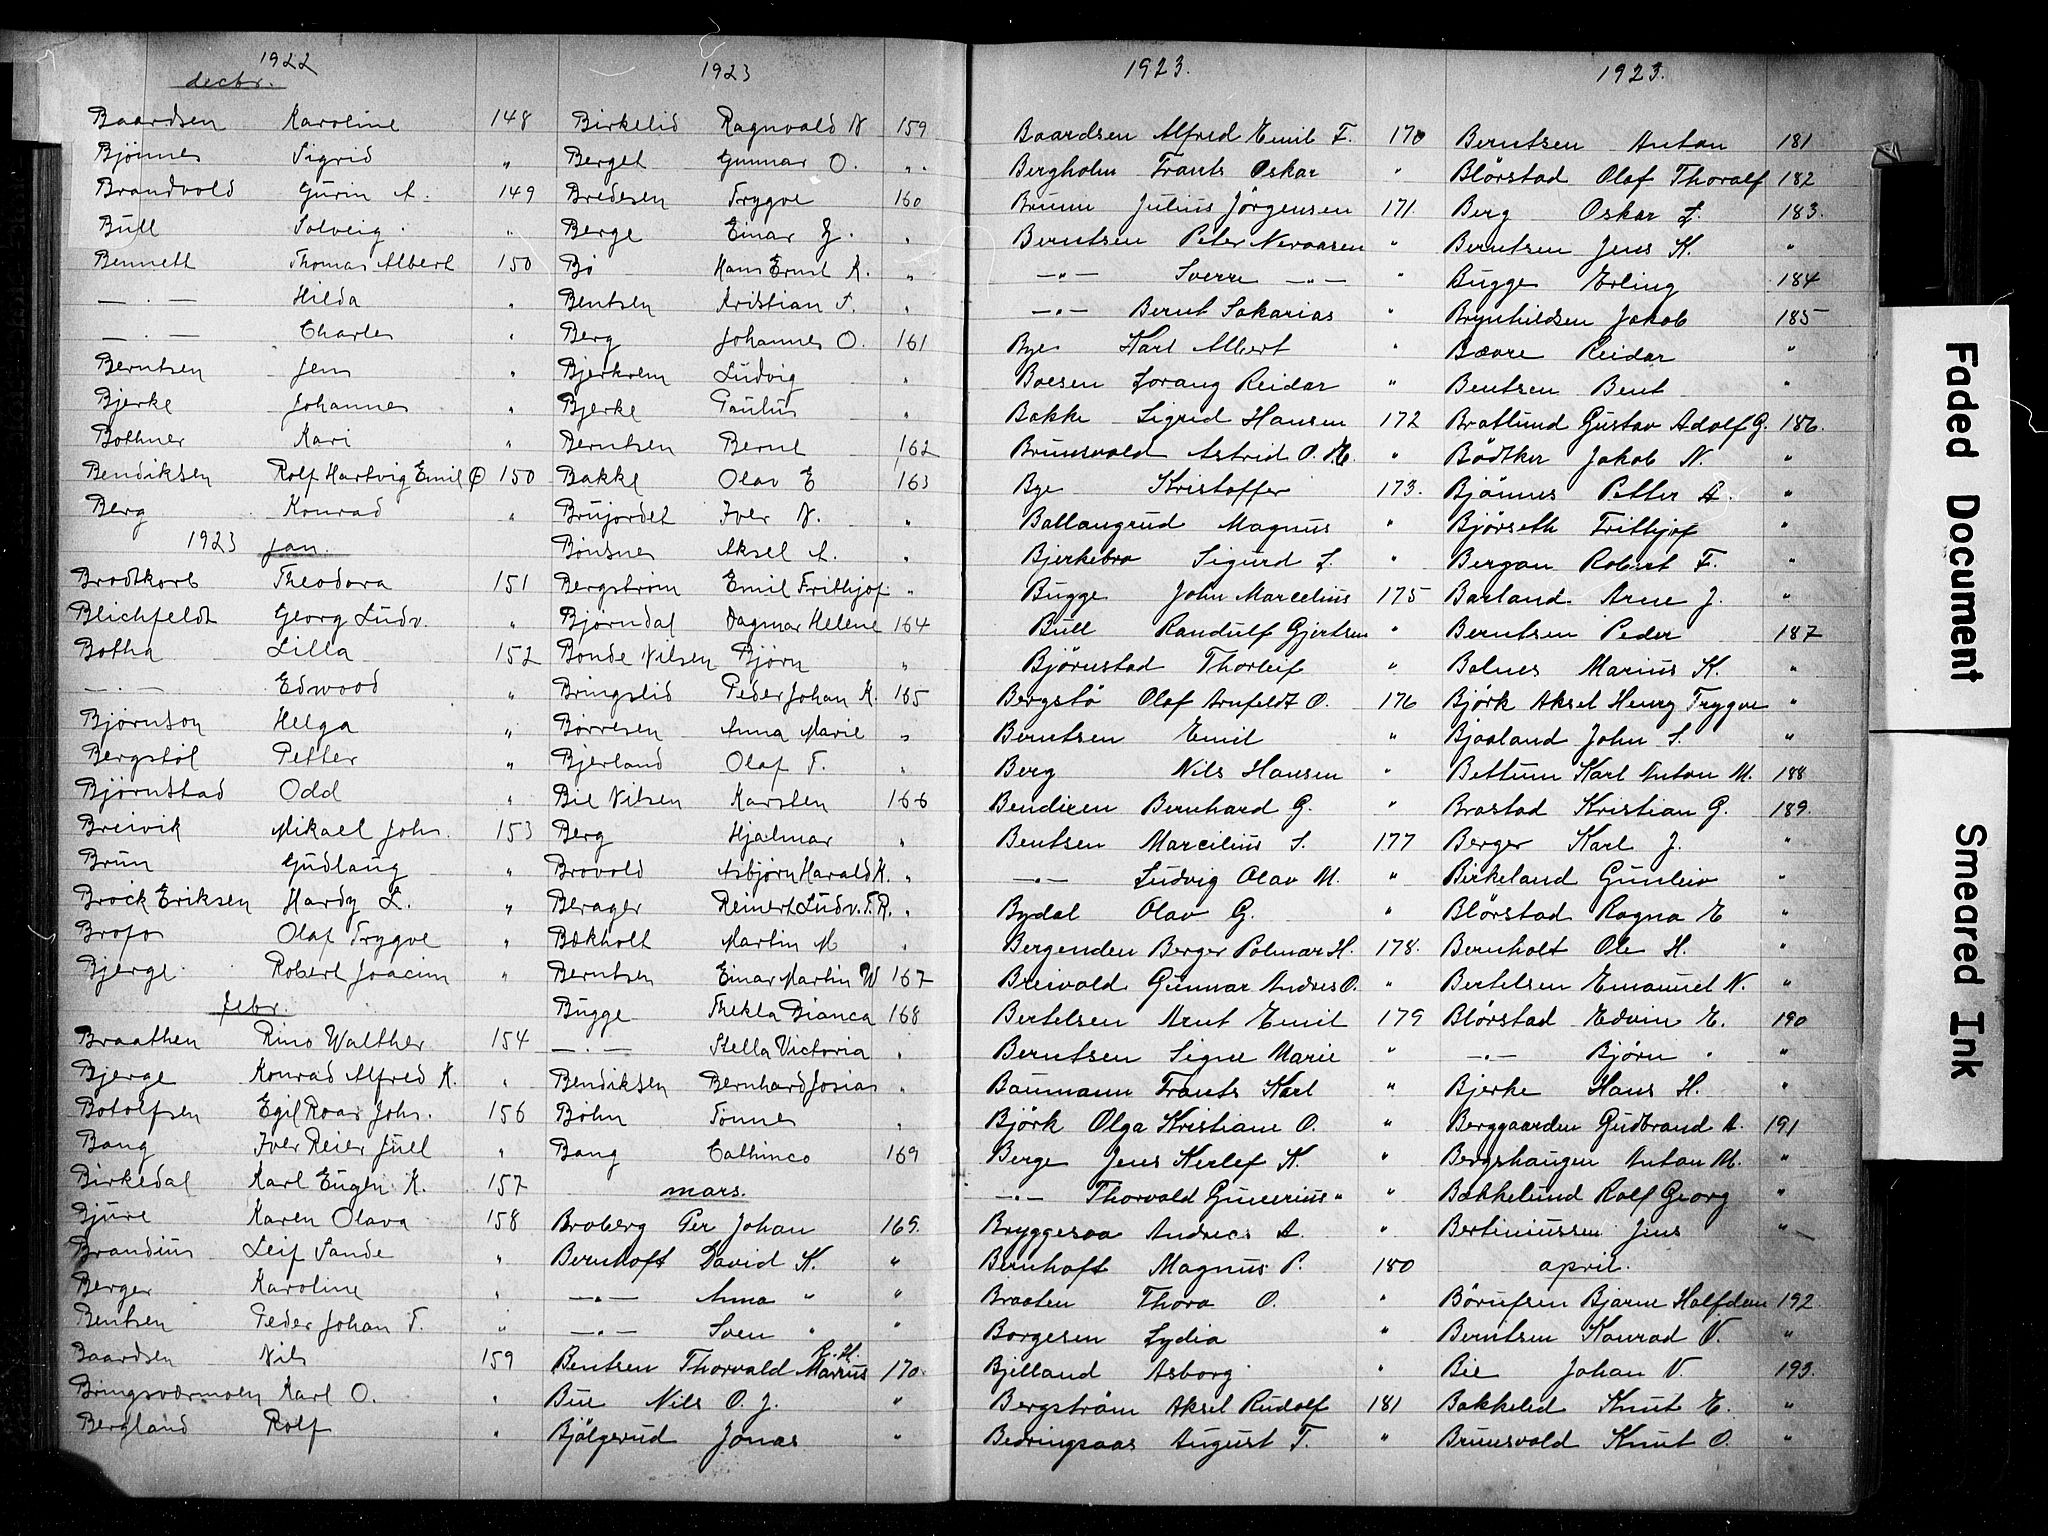 1922
decbr.
Baardsen Karoline 148
Bjönnes Sigrid "
Brandvold Gurin A. 149
Bull Solveig "
Bennett Thomas Albert 150
— . — Hilda "
— . — Charles "
Berntsen Jens "
Bjerke Johannes "
Bothner Kari "
Bendiksen Rolf Hartvig Emil O 150
Berg Konrad "
1923 jan.
Brodtkorb Theodora 151
Blichfeldt Georg Ludv. "
Botha Lilla 152
— . — Edwood "
Bjørnson Helga "
Bergstøl Petter "
Bjørnstad Odd "
Breivik Mikael Joh. 153
Brun Gudlaug "
Brock Eriksen Hardy L. "
Brofos Olaf Trygve "
Bjerge Robert Joacim "
febr.
Braathen Rino Walther 154
Bjerge Konrad Alfred K. "
Botolfsen Egil Roar Joh. 156
Bang Iver Reier Juell "
Birkedal Karl Eugen K. 157
Bjure Karen Olava 158
Brandius Leif Sande "
Berger Karoline "
Bentsen Peder Johan T. "
Baardsen Nils 159
Bringsværmoen Karl O. "
Bergland Rolf "
1923
Birkelid Ragnvald N 159
Berget Gunnar O. "
Bredesen Trygve 160
Berge Einar J. "
Bö Hans Ernst K. "
Bentsen Kristian S. "
Berg Johannes O. 161
Bjerkrem Ludvig "
Bjerke Paulus "
Berntsen Bernt 162
Bakke Olav E 163
Brujordet Iver N. "
Bönsnes Aksel A. "
Bergstrøm Emil Frithjof "
Bjørndal Dagmar Helene 164
Bonde Nilsen Bjørn "
Bringslid Peder Johan K. 165
Børresen Anna Marie "
Bjerland Olaf T. "
Bie Nilsen Karsten 166
Berg Hjalmar "
Brovold Asbjørn Harald K. "
Berager Reinert Ludv. T. R. "
Bækholt Martin M "
Berntsen Einar Martin W 167
Bugge Thekla Bianca 168
— . — Stella Victoria "
Bendiksen Bernhard Josias "
Bøhn Tønnes "
Bang Cathinca 169
mars.
Broberg Per Johan 169.
Bernhoft David K. "
— " — Anna " "
— " — Sven " "
Bentsen Thorvald Marius R. H. 170.
Bue Nils O. J. "
Bjölgerud Jonas "
1923.
Baardsen Alfred Emil F. 170
Bergholm Frants Oskar "
Brunn Julius Jörgensen 171.
Berntsen Peter Nevaasen "
— " — Sverre — " — "
— " — Bernt Sakarias "
Bye Karl Albert "
Boesen Lorang Reidar "
Bakke Sigrid Hansen 172
Brunsvold Astrid O. M. "
Bye Kristoffer 173.
Ballangrud Magnus "
Bjerkebro Sigurd L. "
Bugge John Marcelius 175
Bull Randulf Gjertsen "
Björnstad Thorleif "
Bergstö Olaf Arnfeldt O. 176
Berntsen Emil "
Berg Nils Hansen "
Bendixen Bernhard G. "
Bentsen Marcilius S. 177
— " — Ludvig Olav M. "
Bydal Olav G. "
Bergenden Berger Polmar H. 178.
Breivold Gunnar Andres O. "
Bertelsen Arnt Emil 179
Berntsen Signe Marie "
Baumann Frants Karl "
Björk Olga Kristiane O. "
Berge Jens Kerlef K. "
— " — Thorvald Gunerius " "
Bryggesaa Andreas A. "
Bernhoft Magnus P. 180
Braaten Thora O. "
Borgesen Lydia "
Bjelland Asborg "
Bergström Aksel Rudolf 181
Bedringsaas August T. "
1923.
Berntsen Anton 181
Blörstad Olaf Thoralf 182
Berg Oskar L. 183.
Berntsen Jens K. "
Bugge Erling 184
Brynhildsen Jakob 185
Bævre Reidar "
Bentsen Bent "
Bratlund Gustav Adolf G. 186.
Bödtker Jakob N. "
Bjönnes Petter A. "
Bjørseth Frithjof "
Bergan Robert F. "
Barland Arne J. "
Berntsen Peder 187
Bolnes Marius K. "
Björk Aksel Henry Trygve "
Bjaaland John S. "
Bettum Karl Anton M. 188
Brastad Kristian G. 189.
Berger Karl J. "
Birkeland Gunleiv "
Blörstad Ragna E "
Bernholt Ole H. "
Bertelsen Emanuel N. "
Blörstad Edvin E. 190
— . — Björn " "
Bjerke Hans H. "
Berggaarden Gudbrand A. 191
Bergshaugen Anton M. "
Bækkelund Rolf Georg "
Bertiniussen Jens "
april.
Börufsen Bjarne Halfdan 192.
Berntsen Konrad V. "
Bie Johan V. 193.
Bakkelid Knut E. "
Brunsvold Knut O. "
Faded Document
Smeared Ink